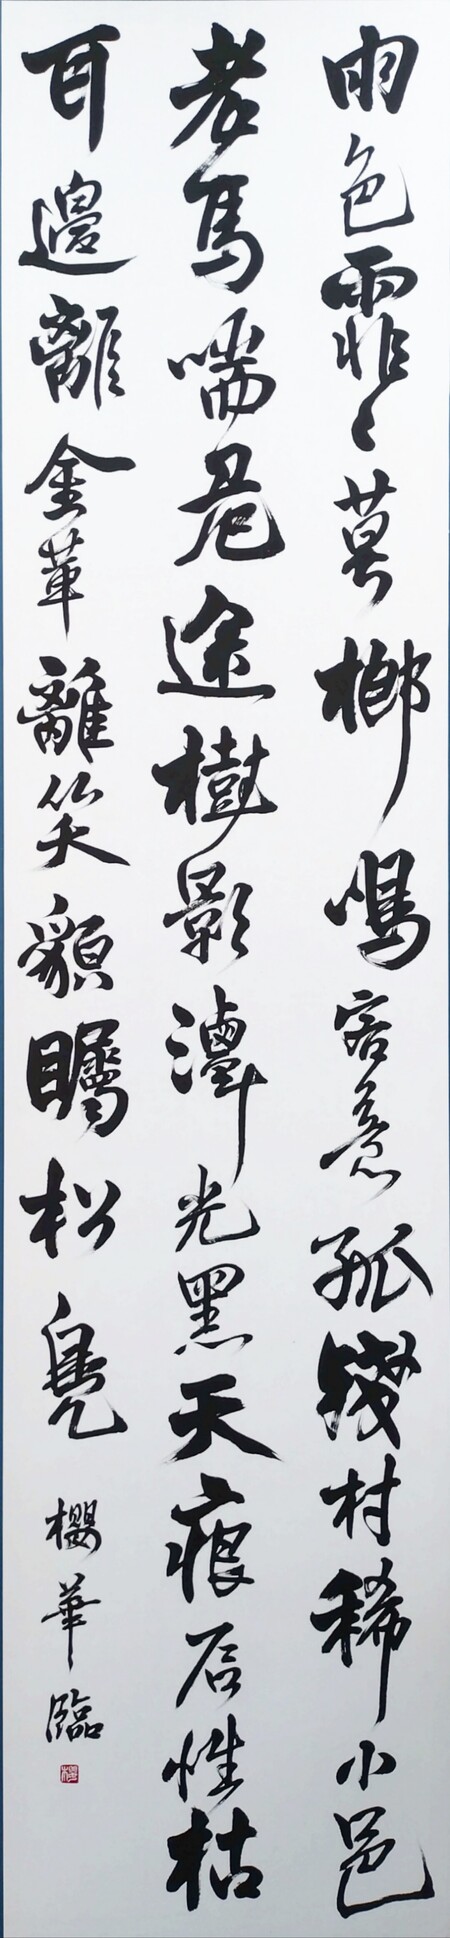 雨色霏〻莫榔鳴客意孤殘村稀小邑
老馬喘危途樹影潭光黑天痕石性枯
耳邊離金革離笑貌矚松鳧
櫻華臨